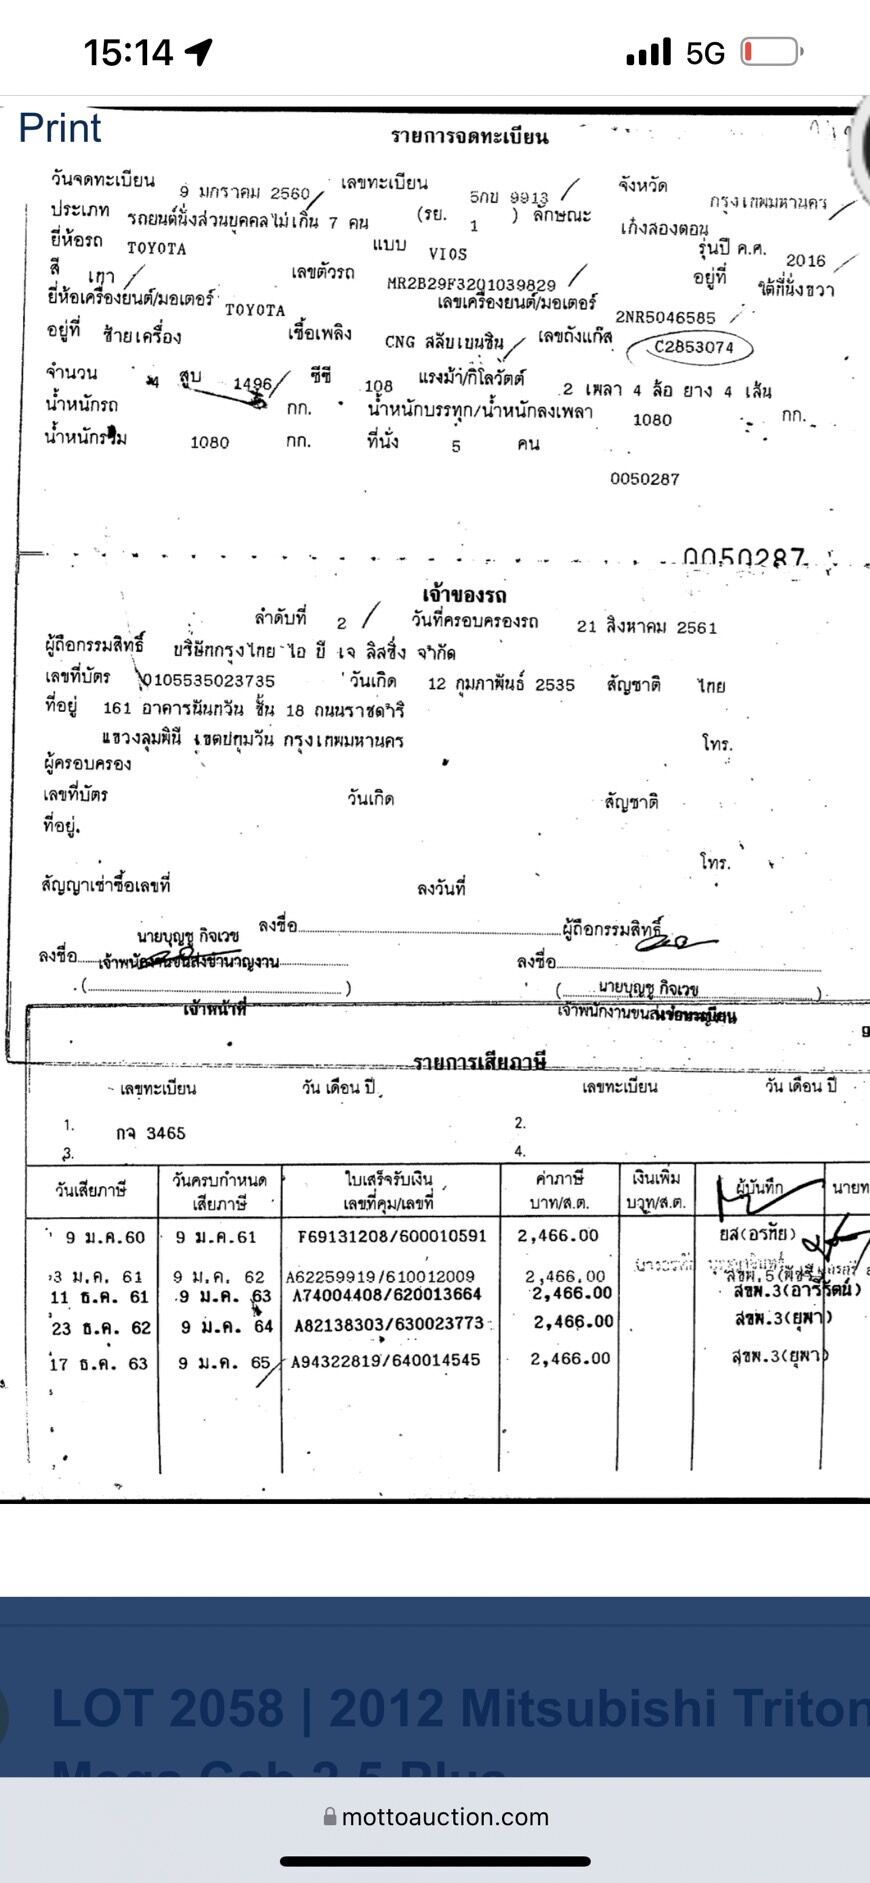 15:14
5G
Print
รายการจดทะเบียน
วันจดทะเบียน 9 มกราคม 2560 เลขทะเบียน 5กข 9913 จังหวัด กรุงเทพมหานคร
ประเภท รถยนต์นั่งส่วนบุคคลไม่เกิน 7 คน (รย. 1 ) ลักษณะ เก๋งสองตอน
ยี่ห้อรถ TOYOTA แบบ VIOS รุ่นปี ค.ศ. 2016
สี เทา เลขตัวรถ MR2B29F3201039829 อยู่ที่ ใต้ที่นั่งขวา
ยี่ห้อเครื่องยนต์/มอเตอร์ TOYOTA เลขเครื่องยนต์/มอเตอร์ 2NR5046585
อยู่ที่ ซ้ายเครื่อง เชื้อเพลิง CNG สลับเบนซิน เลขถังแก๊ส C2853074
จำนวน 4 สูบ 1496 ซีซี 108 แรงม้า/กิโลวัตต์ 2 เพลา 4 ล้อ ยาง 4 เส้น
น้ำหนักรถ กก. น้ำหนักบรรทุก/น้ำหนักลงเพลา 1080 กก.
น้ำหนักรวม 1080 กก. ที่นั่ง 5 คน
0050287
0050287
เจ้าของรถ
ลำดับที่ 2 วันที่ครอบครองรถ 21 สิงหาคม 2561
ผู้ถือกรรมสิทธิ์ บริษัทกรุงไทย ไอ บี เจ ลิสซิ่ง จำกัด
เลขที่บัตร 0105535023735 วันเกิด 12 กุมภาพันธ์ 2535 สัญชาติ ไทย
ที่อยู่ 161 อาคารนันทวัน ชั้น 18 ถนนราชดำริ
แขวงลุมพินี เขตปทุมวัน กรุงเทพมหานคร โทร.
ผู้ครอบครอง
เลขที่บัตร วันเกิด สัญชาติ
ที่อยู่.
โทร.
สัญญาเช่าซื้อเลขที่ ลงวันที่
ลงชื่อ ผู้ถือกรรมสิทธิ์
นายบุญชู กิจเวช
ลงชื่อ เจ้าพนักงานขนส่งชำนาญงาน ลงชื่อ
( ) ( นายบุญชู กิจเวช )
เจ้าหน้าที่ เจ้าพนักงานขนส่ง
รายการเสียภาษี
เลขทะเบียน วัน เดือน ปี เลขทะเบียน วัน เดือน ปี
1. กจ 3465 2.
3. 4.
วันเสียภาษี วันครบกำหนดเสียภาษี ใบเสร็จรับเงิน เลขที่คุม/เลขที่ ค่าภาษี บาท/ส.ต. เงินเพิ่ม บาท/ส.ต. ผู้บันทึก นายท
9 ม.ค.60 9 ม.ค.61 F69131208/600010591 2,466.00 ยส(อรทัย)
3 ม.ค. 61 9 ม.ค. 62 A62259919/610012009 2,466.00
11 ธ.ค. 61 9 ม.ค. 63 A74004408/620013664 2,466.00 สขพ.3(อารีรัตน์)
23 ธ.ค. 62 9 ม.ค. 64 A82138303/630023773 2,466.00 สขพ.3(ยุพา)
17 ธ.ค. 63 9 ม.ค. 65 A94322819/640014545 2,466.00 สขพ.3(ยุพา)
LOT 2058 | 2012 Mitsubishi Triton
Mega Cab 2.5 Plus
mottoauction.com